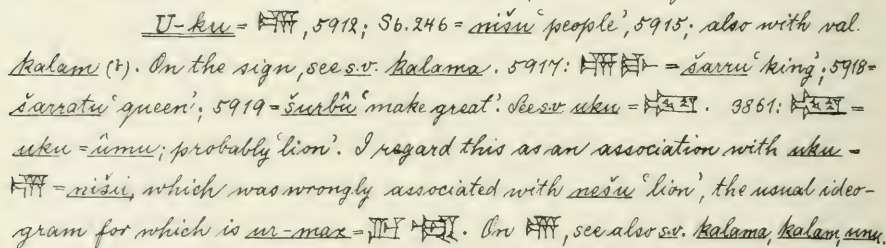 U-ku = 𒌦, 5912; Sb. 246 = nišu ‘people’, 5915; also with val.
kalam (?). On the sign, see s.v. kalama. 5917: = šarru ‘king’; 5918 =
šarratu ‘queen’; 5919 = šurbû ‘make great’. See s.v. uku = . 3861: =
uku = ûmu; probably ‘lion’. I regard this as an association with uku -
𒌦 = nišu, which was wrongly associated with nešu ‘lion’, the usual ideo-
gram for which is ur-max = . On 𒌦, see also s.v. kalama, kalam, unu.